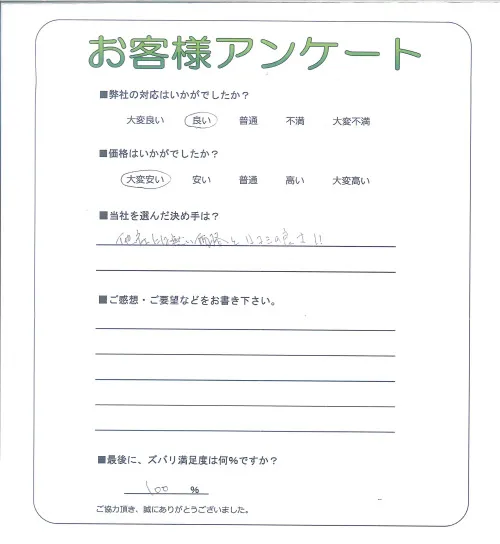 お客様アンケート
■弊社の対応はいかがでしたか？
大変良い 良い 普通 不満 大変不満
■価格はいかがでしたか？
大変安い 安い 普通 高い 大変高い
■当社を選んだ決め手は？
他社には無い価格と口コミの良さ!!
■ご感想・ご要望などをお書き下さい。
■最後に、ズバリ満足度は何%ですか？
100 %
ご協力頂き、誠にありがとうございました。